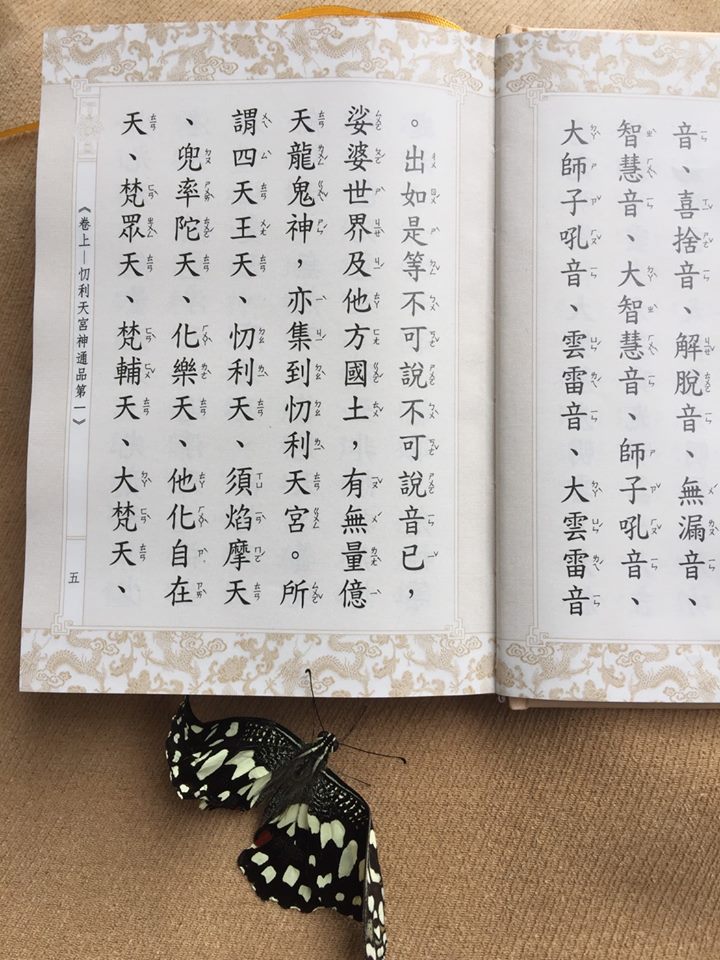 音、喜捨音、解脫音、無漏音、
智慧音、大智慧音、師子吼音、
大師子吼音、雲雷音、大雲雷音
。出如是等不可說不可說音已，
娑婆世界及他方國土，有無量億
天龍鬼神，亦集到忉利天宮。所
謂四天王天、忉利天、須焰摩天
、兜率陀天、化樂天、他化自在
天、梵眾天、梵輔天、大梵天、
《卷上—忉利天宮神通品第一》
五